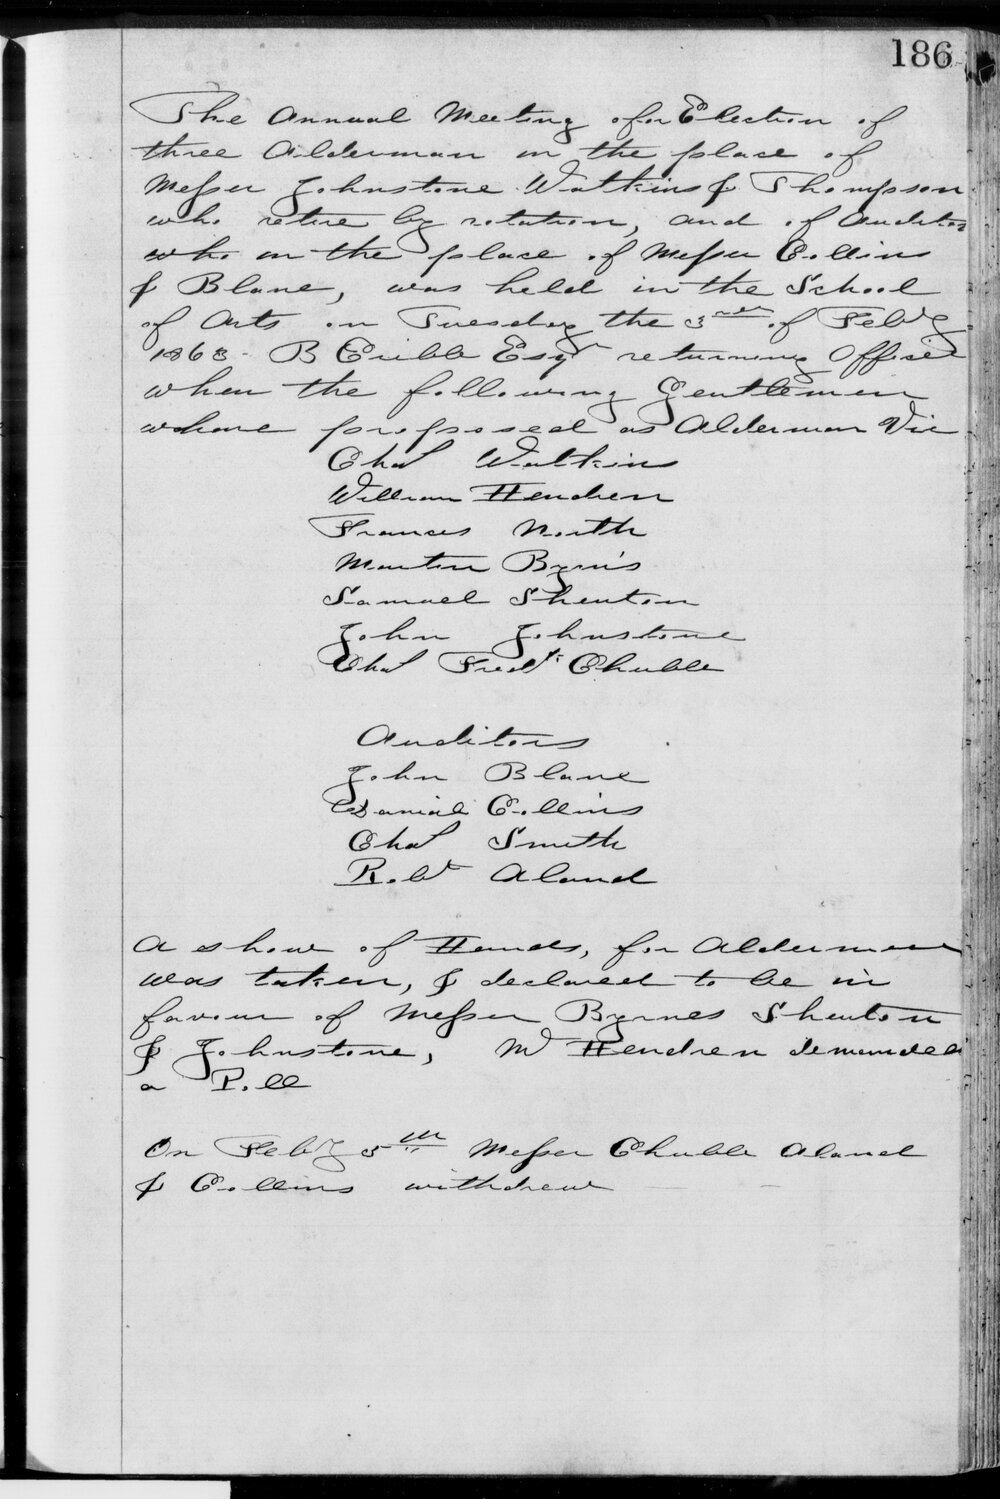 186
The Annual Meeting for Election of
three Alderman in the place of
Messr Johnstone Watkins & Thompson
who retire by rotation, and of Auditor
who in the place of Messr Collins
& Blane, was held in the School
of Arts on Tuesday the 3rd of Feby
1863 - B Cribb Esqr returning Officer
when the following Gentlemen
whare proposed as Alderman Viz
Chas Watkins
William Hendren
Frances North
Martin Byrn's
Samuel Shenton
John Johnstone
Chas Fredk Chubb
Auditors
John Blane
Danial Collins
Chas Smith
Robt Aland
A show of Hands, for Aldermen
was taken, & declared to be in
favour of Messer Byrnes Shenton
& Johnstone, Mr Hendren demanded
a Poll
On Feby 5th Messer Chubb Aland
& Collins withdrew